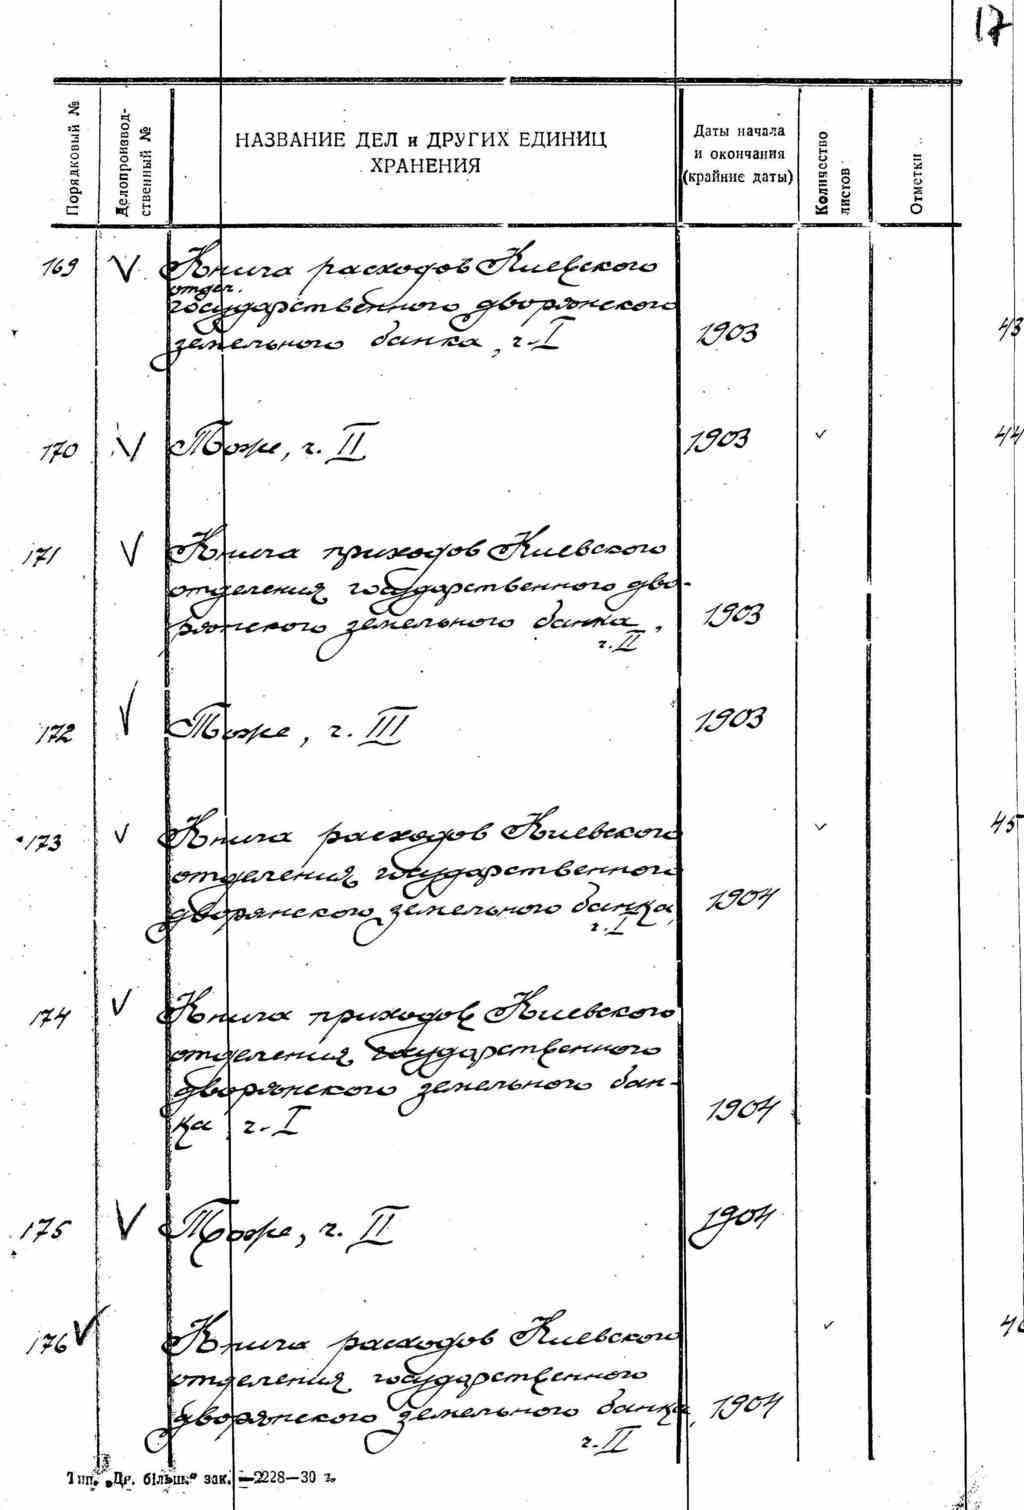 17
Порядковый №
Делопроизвод-
ственный №
НАЗВАНИЕ ДЕЛ и ДРУГИХ ЕДИНИЦ
ХРАНЕНИЯ
Даты начала
и окончания
(крайние даты)
Количество
листов
Отметки
169 V Книга расходов Киевского
отдел.
государственного дворянского
земельного банка, ч. I 1903 43
170 V Тоже, ч. II 1903 ✓ 44
171 V Книга приходов Киевского
отделения государственного дво-
рянского земельного банка, 1903
ч. II
172 V Тоже, ч. III 1903
173 V Книга расходов Киевского ✓ 45
отделения государственного
дворянского земельного банка, 1904
ч. I
174 V Книга приходов Киевского
отделения государственного
дворянского земельного бан-
ка ч. I 1904
175 V Тоже, ч. II 1904
176 V Книга расходов Киевского ✓
отделения государственного
дворянского земельного банка, 1904
ч. II
Тип. „Др. більш.“ зак. —2228—30 г.